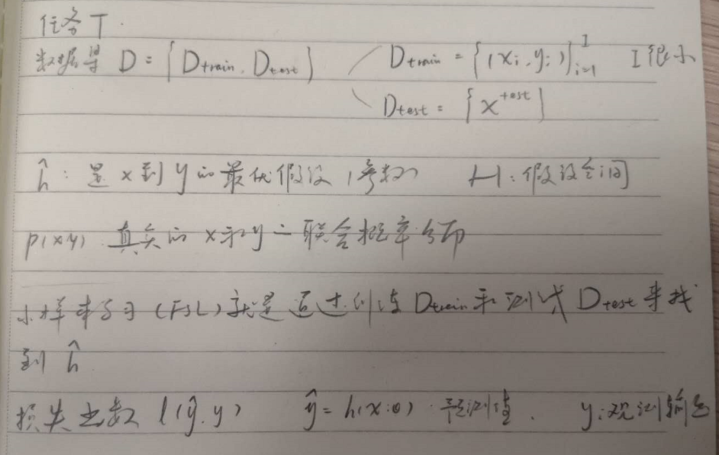 任务T.
数据集 D = {D_train, D_test} D_train = {(x_i, y_i)}_{i=1}^{I} I很小
D_test = {x^{test}}
ĥ: 是x到y的最优假设(参数) H:假设空间
p(x,y) 真实的x和y的联合概率分布
小样本学习(FSL)就是通过训练D_train和测试D_test来找
到 ĥ
损失函数 l(ŷ,y) ŷ=h(x;θ) 预测值. y:观测输出